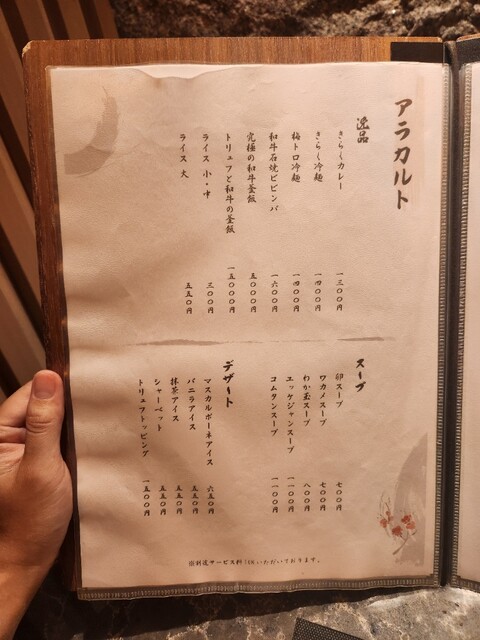 アラカルト
逸品
きらくカレー 一三〇〇円
きらく冷麺 一四〇〇円
梅トロ冷麺 一四〇〇円
和牛石焼ビビンバ 一六〇〇円
究極の和牛釜飯 五〇〇〇円
トリュフと和牛の釜飯 一五〇〇〇円
ライス 小・中 三〇〇円
ライス 大 五五〇円
スープ
卵スープ 七〇〇円
ワカメスープ 七〇〇円
わか玉スープ 八〇〇円
ユッケジャンスープ 一一〇〇円
コムタンスープ 一一〇〇円
デザート
マスカルポーネアイス 六五〇円
バニラアイス 五五〇円
抹茶アイス 五五〇円
シャーベット 五五〇円
トリュフトッピング 一五〇〇円
※別途サービス料10%いただいております。